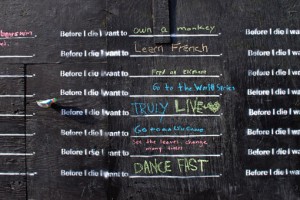 Before I die I want to own a monkey Before I die I wan
Before I die I want to Learn French Before I die I wan
Before I die I want to Feed an Before I die I wan
Before I die I want to Go to the World Series Before I die I wan
Before I die I want to TRULY LIVE Before I die I wan
Before I die I want to Before I die I wan
Before I die I want to See the leaves change Before I die I wan
many times
Before I die I want to DANCE FAST Before I die I wan